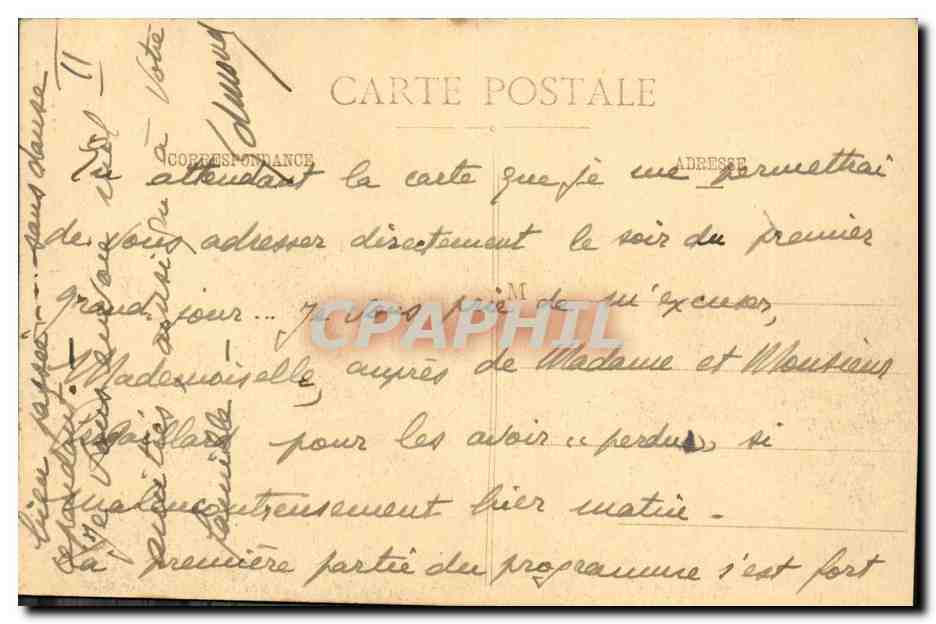 CARTE POSTALE
CORRESPONDANCE
ADRESSE
En attendant la carte que je me permettrai
de vous adresser directement le soir du premier
grand jour... je vous prie de m'excuser,
Mademoiselle, auprès de Madame et Monsieur
pour les avoir "perdus" si
malencontreusement hier matin -
La première partie du programme s'est fort
M
CPAPHIL
bien passée - - sans danse
cependant!-
Je vous envoie
amitiés à Votre
famille -